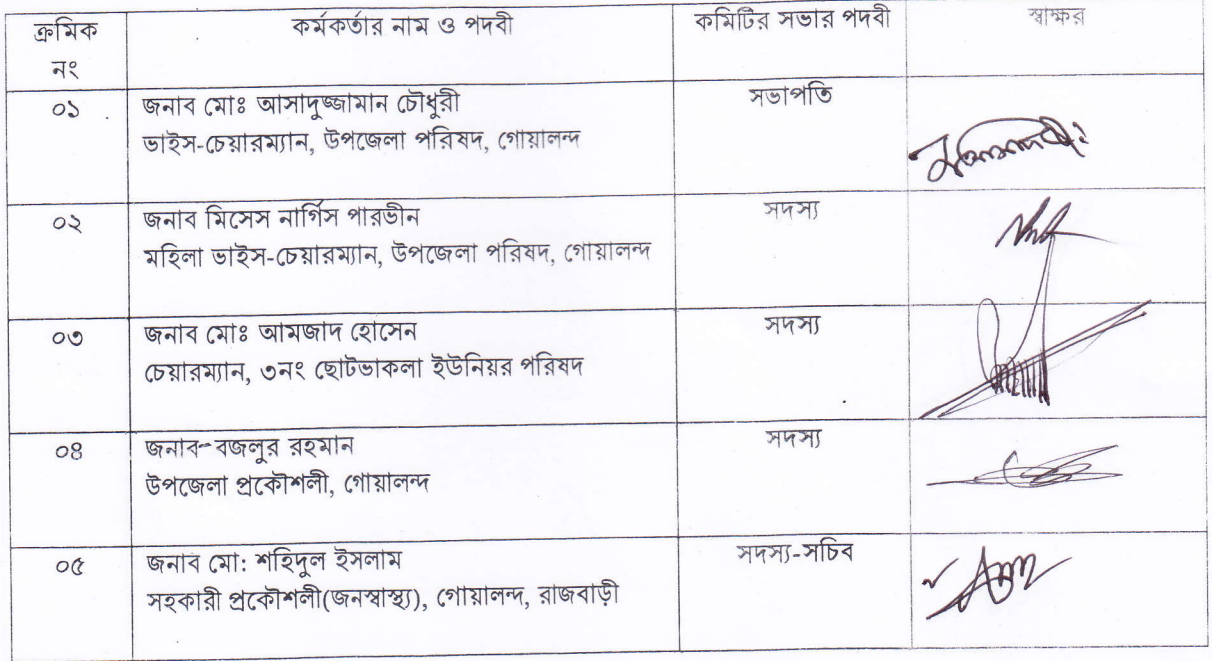 ক্রমিক নং কর্মকর্তার নাম ও পদবী কমিটির সভার পদবী স্বাক্ষর
০১ জনাব মোঃ আসাদুজ্জামান চৌধুরী সভাপতি
ভাইস-চেয়ারম্যান, উপজেলা পরিষদ, গোয়ালন্দ
০২ জনাব মিসেস নার্গিস পারভীন সদস্য
মহিলা ভাইস-চেয়ারম্যান, উপজেলা পরিষদ, গোয়ালন্দ
০৩ জনাব মোঃ আমজাদ হোসেন সদস্য
চেয়ারম্যান, ৩নং ছোটভাকলা ইউনিয়র পরিষদ
০৪ জনাব- বজলুর রহমান সদস্য
উপজেলা প্রকৌশলী, গোয়ালন্দ
০৫ জনাব মো: শহিদুল ইসলাম সদস্য-সচিব
সহকারী প্রকৌশলী(জনস্বাস্থ্য), গোয়ালন্দ, রাজবাড়ী